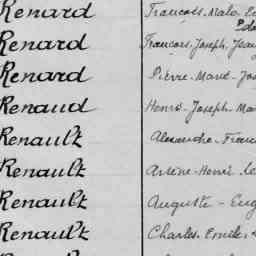 Renard François. Malo.
Renard François. Joseph. Jean
Renard Pierre. Marie. Jos
Renaud Henri. Joseph. Mar
Renault Alexandre. Franc
Renault Arsène. Henri.
Renault Auguste - Eug
Renault Charles. Emile.